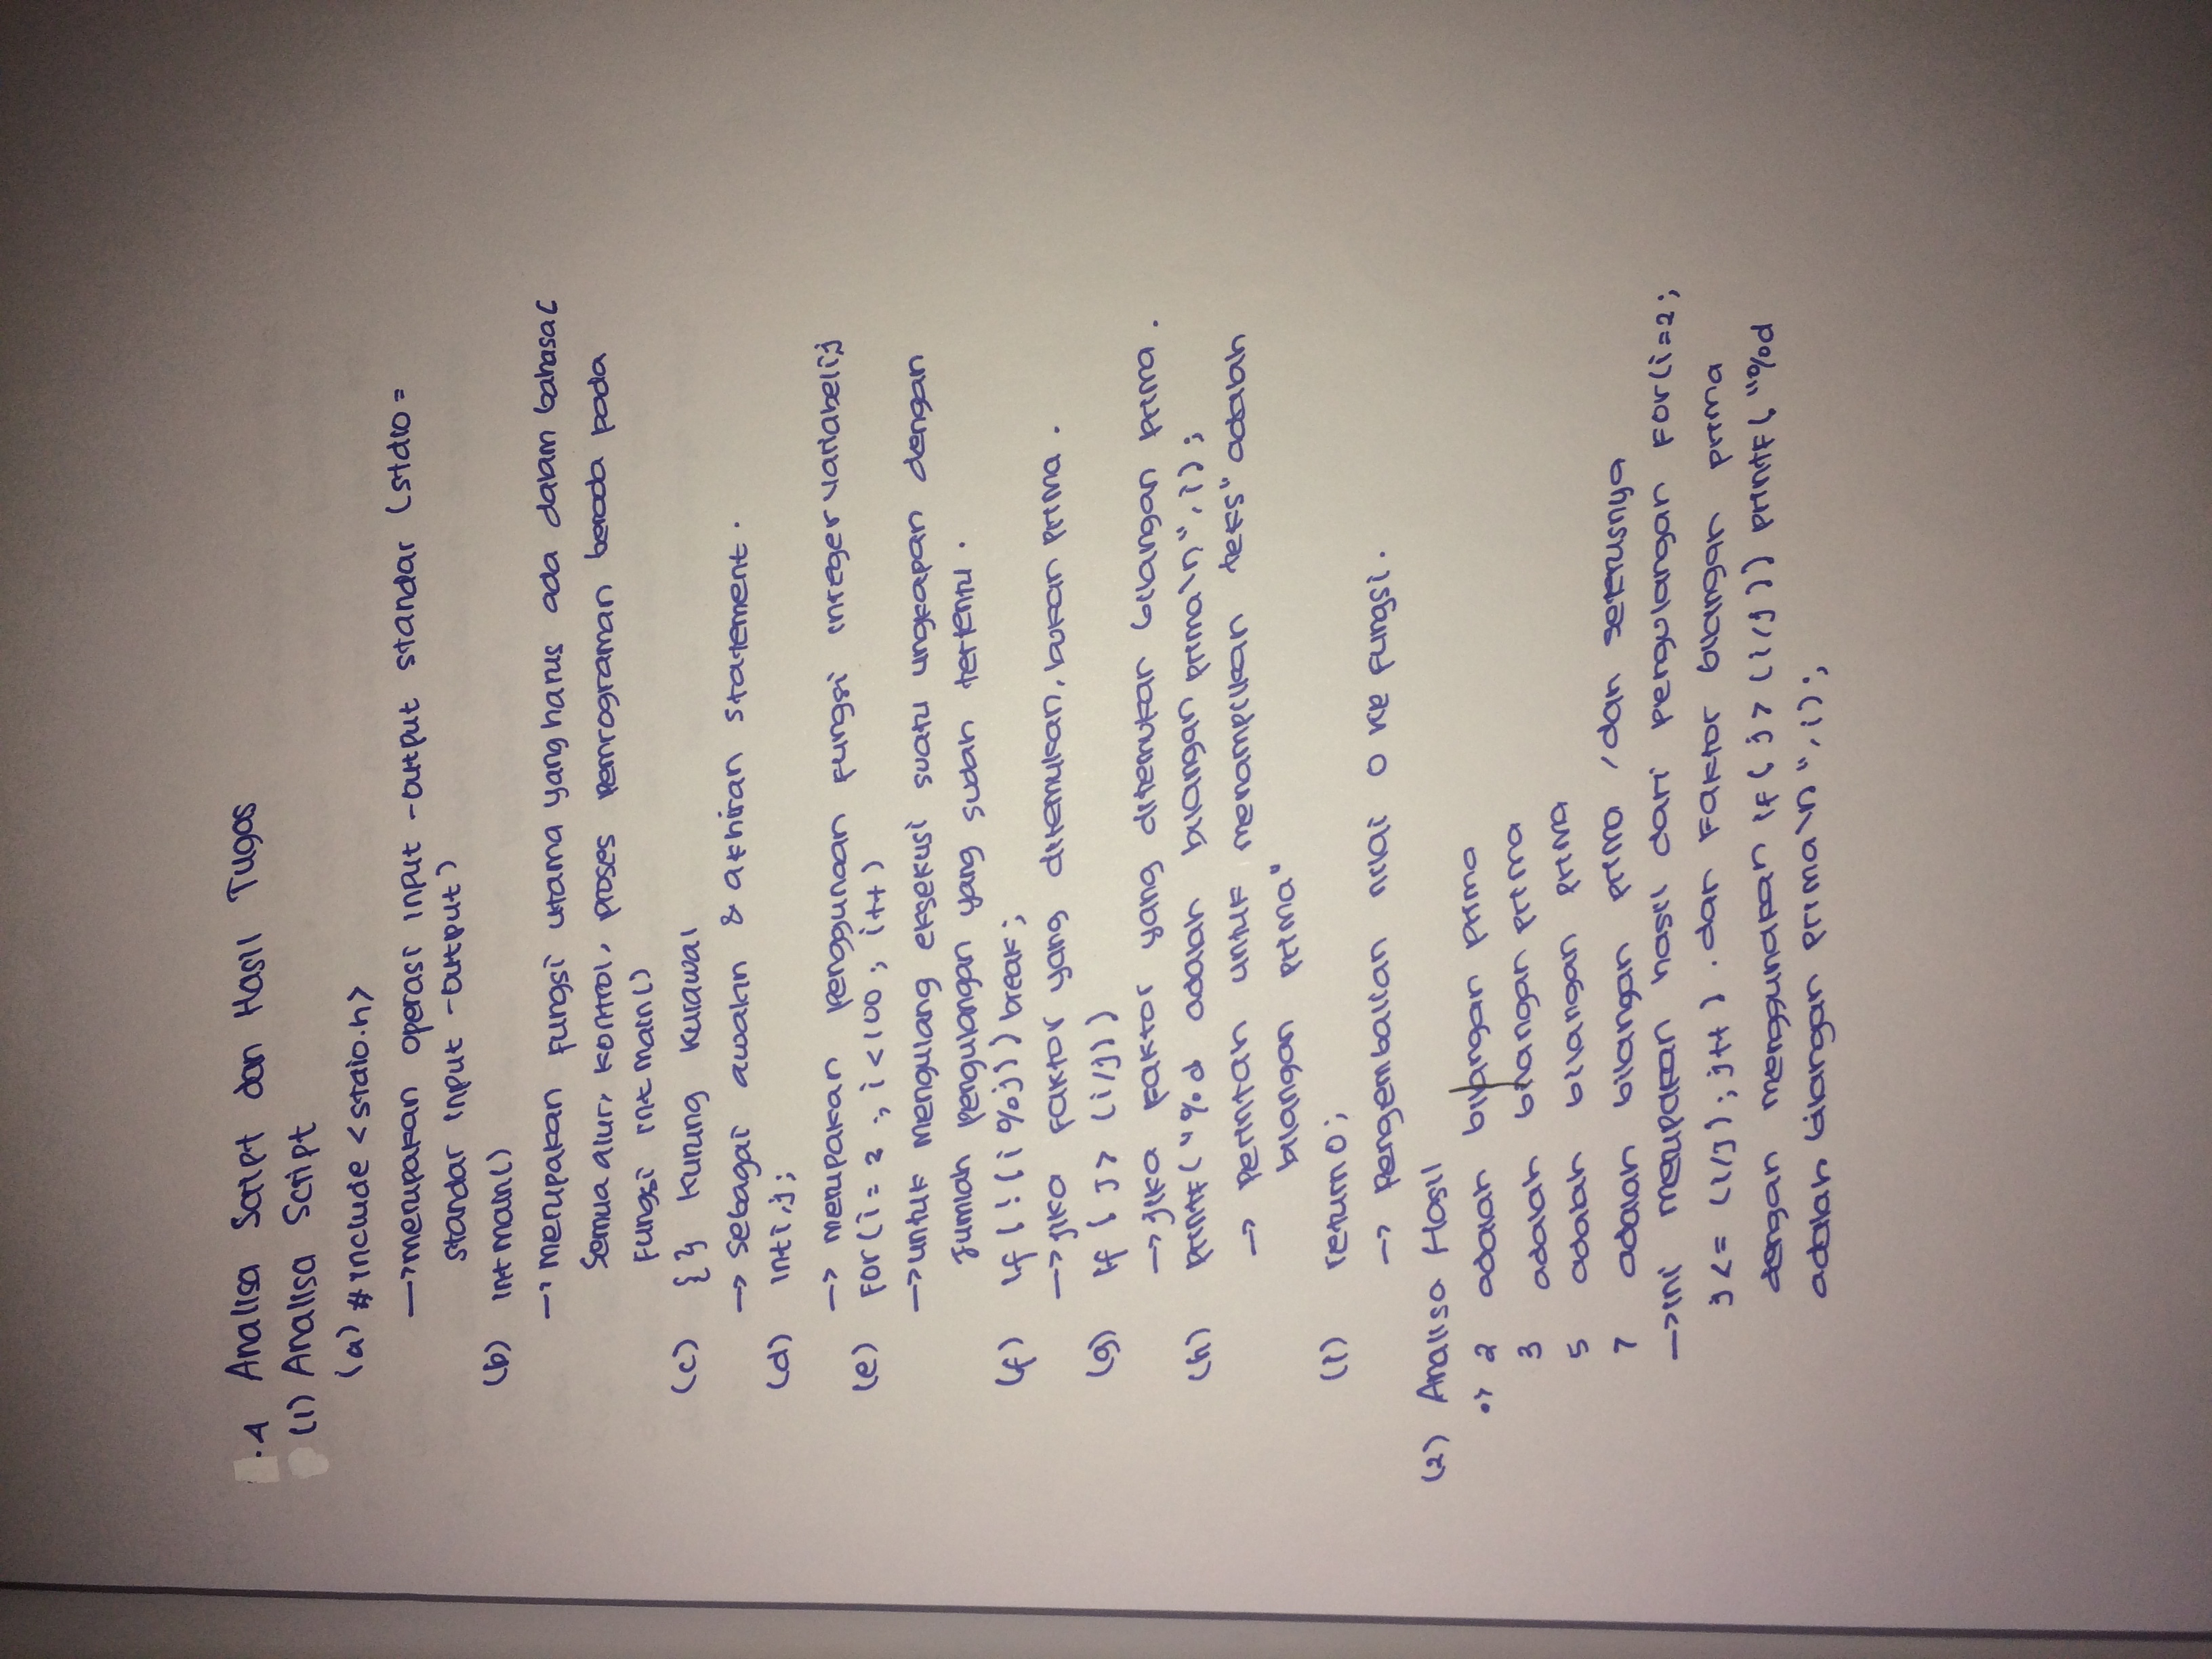 .4 Analisa Script dan Hasil Tugas
(1) Analisa Script
(a) #include <stdio.h>
→ merupakan operasi input -output standar (stdio =
standar input -output)
(b) int main()
→ merupakan fungsi utama yang harus ada dalam bahasa C
Semua alur, kontrol, proses pemrograman berada pada
fungsi int main()
(c) { } kurung kurawal
→ sebagai awalan & akhiran statement.
(d) int i,j;
→ merupakan penggunaan fungsi integer variabel i,j
(e) for(i = 2 ; i < 100 ; i++)
→ untuk mengulang eksekusi suatu ungkapan dengan
jumlah pengulangan yang sudah tertentu.
(f) if ( ! (i %j)) break;
→ jika faktor yang ditemukan, bukan prima.
(g) if ( j > (i/j))
→ jika faktor yang ditemukan bilangan prima.
(h) printf("%d adalah bilangan prima\n", i);
→ perintah untuk menampilkan teks "adalah
bilangan prima"
(i) return 0;
→ pengembalian nilai 0 ke fungsi.
(2) Analisa Hasil
•> 2 adalah bilangan prima
3 adalah bilangan prima
5 adalah bilangan prima
7 adalah bilangan prima, dan seterusnya
→ ini merupakan hasil dari pengulangan for(i=2;
j <= (i/j); j++). dan faktor bilangan prima
dengan menggunakan if( j > (i/j)) printf("%d
adalah bilangan prima\n", i);